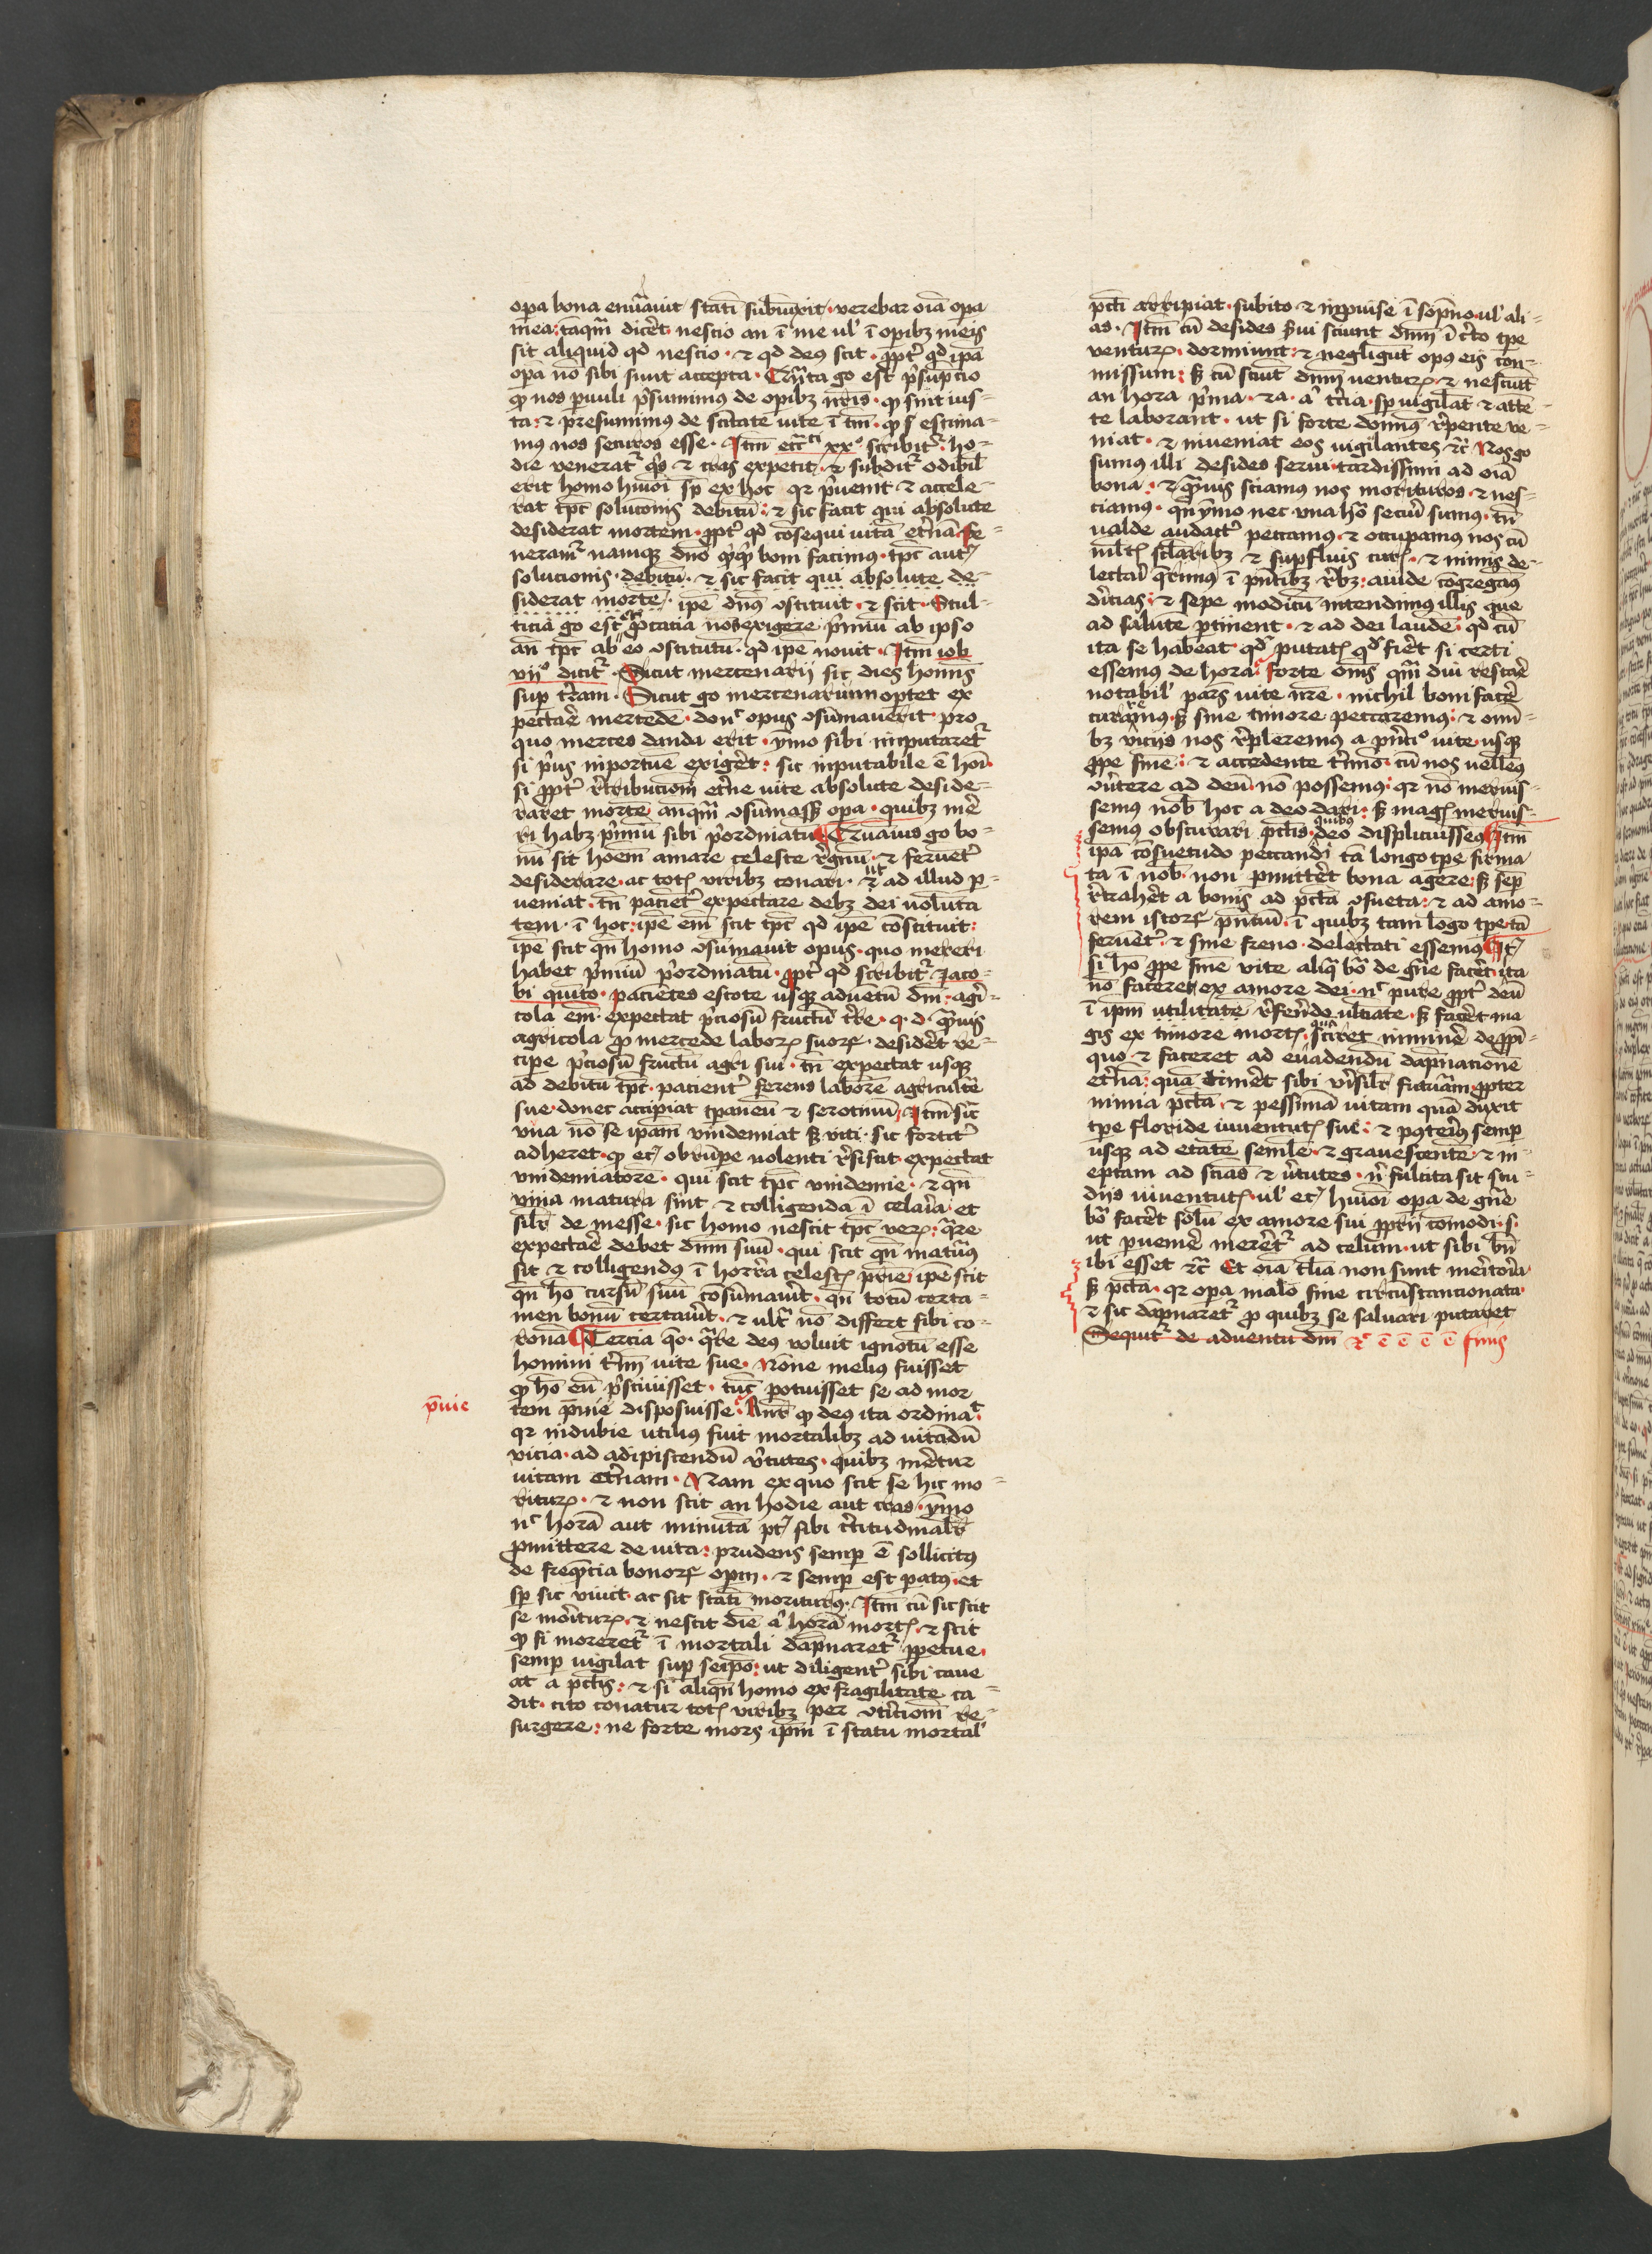 opa bona enu̅auit stati̅ subiu̅xit · verebar oi̅a opa
mea : ta̅qm̅ dic̅et nescio an i̅ me ul' i̅ opibz meis
sit aliquid qd nescio · ⁊ qd deus scit · ppt̉ qd ipa̅
opa no̅ sibi sunt accepta · go est p̉su̅pcio
qp nos pauuli p̉sumimus de opibz nr̅is · qp sint ius-
ta : ⁊ presumimus de sc̅itate uite i̅ tm̅ · qp estima-
mus nos securos esse · Itm̅ xxᵒ scribit̉ · ho-
die venerat̉ ⁊ cras expetit · ⁊ subdit̉ odibil'
erit homo hm̅oi sp̅ ex hoc qr p̉uenit ⁊ accele-
rat tpc̅ soluco̅nis debitu̅ : ⁊ sic facit qui absolute
desiderat mortem · ppt̉ qd co̅sequi uita̅ et̉na̅ · fe-
neram̉ namqz dn̅o bonu̅ facimus · tpc̅ aut̅
solucionis · debitu̅ · ⁊ sic facit qui absolute de-
siderat morte̅ · ipe̅ dn̅s ↄstituit · ⁊ scit · Stul-
ticia̅ go est nos exigere p̉miu̅ ab ipso
an̅ tpc̅ ab eo ↄstitutu̅ · qd ipe̅ nouit · Itm̅ iob
vijᵒ dicit̉ · Sicut mercenarij sic dies homi̅s
sup tr̅am · Sicut go mercenarium optet ex
pecta̅e mercede̅ · don̅c opus ↄsu̅mauerit · pro
quo merces danda erit · ymo sibi imputaret̉
si p̉us inportu̅e exiger̅et : sic inputabile e̅ ho̅i ·
si ppt̉ r̅tribucio̅m et̉ne uite absolute deside-
raret morte̅ anqm̅ ↄsu̅mass; opa · quibz me̅
ri habz p̉miu̅ sibi p̉ordinatu̅ ¶ Qua̅uis go bo-
nu̅ sit ho̅em amare celeste r̅gnu̅ · ⁊ feruet̉
desiderare · ac totis viribz conari · ⁊ ut ad illud p-
ueniat · tn̅ pacie̅t̉ expectare debz dei uolu̅ta
tem · i̅ hoc : ipe̅ em̅ scit tpc̅ qd ipe̅ co̅stituit :
ipe̅ scit qn̅ homo ↄsu̅mauit opus · quo mereri
habet p̉miu̅ p̉ordinatu̅ · ppt̉ qd scribit̉ Jaco-
bi quinto · pacie̅tes estote usqz adue̅tu̅ dm̅ · agri-
cola em̅ · expectat p̉ciosu̅ fructu̅ tr̅e · q · d · qua̅uis
agricola p mercede laborꝝ suorꝝ · desider̅et re-
cipe p̉ciosu̅ fructu̅ agri sui · tn̅ expectat usqz
ad debitu̅ tpc̅ · pacient̉ ferens labore̅ agricult̉e
sue · donec accipiat tpaneu̅ ⁊ serotinu̅ · Itm̅ sic̅
vua no̅ se ipam̅ vindemiat s; viti · sic fortit̉
adheret · qp eci̅ obru̅pe uolenti r̅sistit · expectat
vindemiatore̅ · qui scit tpc̅ vindemie · ⁊ qn̅
vina matura sint ⁊ colligenda i̅ celaria · et
sil̅r de messe · sic homo nescit tpc̅ verꝝ : qr̅e
expecta̅e debet dn̅m suu̅ · qui scit qn̅ matur̅us
sit ⁊ colligendus i̅ horr̅a celestis pr̅ie · ipe̅ scit
qn̅ ho̅ cursu̅ suu̅ co̅su̅mauit · qn̅ totu̅ certa-
men bonu̅ certauit · ⁊ ult̉ no̅ differt sibi co-
rona̅ ¶ Tercia qo · qr̅e deus voluit ignotu̅ esse
homini t̉mi̅ uite sue · No̅ne melius fuisset
qp ho̅ eu̅ p̉sciuisset · tu̅c potuisset se ad mor
pm̅ie
tem pm̅ie disposuisse · Ant̅ qp deus ita ordinat ·
qr indubie utilius fuit mortalibz ad uita̅du̅
vicia · ad adipiscendu̅ v̉tutes · quibz mer̅etur
uitam et̉nam · Nam ex quo scit se hic mo-
riturꝝ · ⁊ non scit an hodie aut cras · ymo
nᶜ hora̅ aut minuta̅ pt̅ sibi c̉titudinal̅r
pmittere de uita : prudens semp e̅ sollicitus
de freqn̅cia bonorꝝ opm̅ · ⁊ semp est patus · et
sp̅ sic viuit · ac sit stati̅ moriturus · Itm̅ cu̅ sic scit
se moriturꝝ · ⁊ nescit die̅ a̅ hora̅ mortis · ⁊ scit
qp si moreret̉ i̅ mortali da̅pnaret̉ ppetue ·
semp vigilat sup seipo̅ : ut diligent̉ sibi caue
at a pctis : ⁊ si aliqn̅ homo ex fragilitate ca-
dit · cito conatur totis viribz per ↄt̉icio̅m re-
surgere : ne forte mors ipm̅ i̅ statu mortal'
pcti̅ arripiat · subito ⁊ inpuise i̅ sop̅no · ul' ali-
as · Itm̅ cu̅ desides s̉ui sciunt dn̅m i̅ c̉to tpe
venturꝝ · dormiunt : ⁊ negligu̅t opus eis co̅n-
missum : s; cu̅ sciu̅t dn̅m venturꝝ · ⁊ nesciu̅t
an hora p̉ma · ⁊ a · a̅ t̉cia · sp̅ uigilant ⁊ atte̅-
te laborant · ut si forte domin̅us r̅pente ve-
niat · ⁊ inveniat eos uigilantes ⁊c̅ Nos go
sumus illi desides serui · tardissimi ad oi̅a
bona : ⁊ qua̅uis sciamus nos morituros · ⁊ nes-
ciamus · qn̅ ymo nec vna ho̅ securi sumus · tn̅
ualde audact̉ peccamus · ⁊ occupamus nos cu̅
ml̅tis sc̅laribz ⁊ supfluis curis · ⁊ nimis de-
lectari qr̅imus i̅ pn̅tibz r̅bz : auide co̅gregam̅us
diuicias : ⁊ sepe modicu̅ intendimus illis que
ad salute̅ ptinent · ⁊ ad dei laude̅ · qd cu̅
ita se habeat · qd putatis qd fier̅et si certi
essemus de hora · forte om̅is qm̅ diu restar̅e
notabil' pars uite nr̅e · nichil boni facer̅e
curaremus · s; sine timore peccaremus : ⁊ omi̅-
bz viciis nos r̅pleremus a pn̅cᵒ uite usqz
ppe fine̅ : ⁊ accedente t̉mino · cu̅ nos uelle̅us
ↄu̅tere ad deu̅ no̅ possemus : qr no̅ meruis-
semus nob̅ hoc a deo dari : s; magis meruis-
semus obscurari pctis · quibus deo displicuissem̅us ¶ Itm̅
ipa co̅suetudo peccandi ta̅ longo tpe firma
ta i̅ nob̅ · non pmitter̅et bona agere · s; semp
r̅traher̅et a bonis ad pcta̅ ↄsueta : ⁊ ad amo-
rem istorꝝ pn̅ciu̅ · i̅ quibus tam lo̅go tpe ta̅
feruent̉ · ⁊ sine freno · delectati essemus ¶ It̅
si ho̅ ppe fine̅ vite aliq̅ bo̅ de gn̅e facer̅et · ita
no̅ faceret ex amore dei · nᶜ pure ppt̉ deu̅
i̅ ipm̅ utilitate̅ r̅fere̅do ultimate · s; facer̅et ma
gis ex timore mortis · sciret iminer̅e de ppi̅-
quo ⁊ faceret ad euadendu̅ da̅pnacione̅
et̉na̅ : qua̅ timer̅et sibi ver̅isil̅r futura̅m ppter
nimia pcta̅ · ⁊ pessima̅ uitam qua̅ duxit
tpe floride iuuentutis sue · ⁊ postea̅ semp
usqz ad etate̅ senile̅ · ⁊ grauescente̅ · ⁊ in-
eptam ad scias ⁊ v̉tutes · n̅ fulcita sit stu-
diis iuuentutis · ul' eci̅ hm̅oi opa de gn̅e
bo̅ facer̅et solu̅ ex amore sui pprij co̅modi · s ·
ut pueni̅e mer̅et̉ ad celum · ut sibi bn̅
ibi esset ⁊c̅ Et oi̅a tl̅ia non sunt meritoria
s; pcta̅ · qr opa malo fine circu̅stancionata ·
⁊ sic da̅pnaret̉ p quibz se saluari putaret
Sequit̉ de aduentu dm̅ ⁊ᶜ e̅ e̅ e̅ e̅ e̅ finis